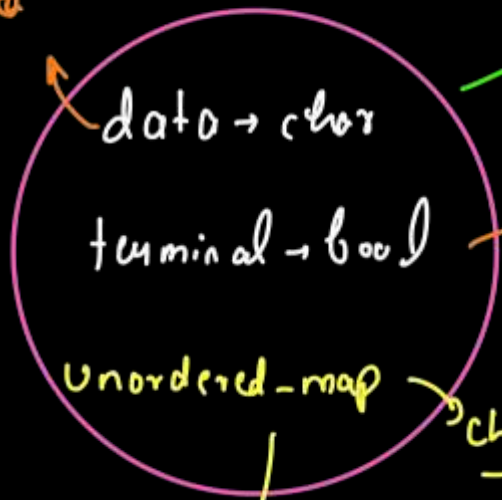 data → char
terminal → bool
unordered_map